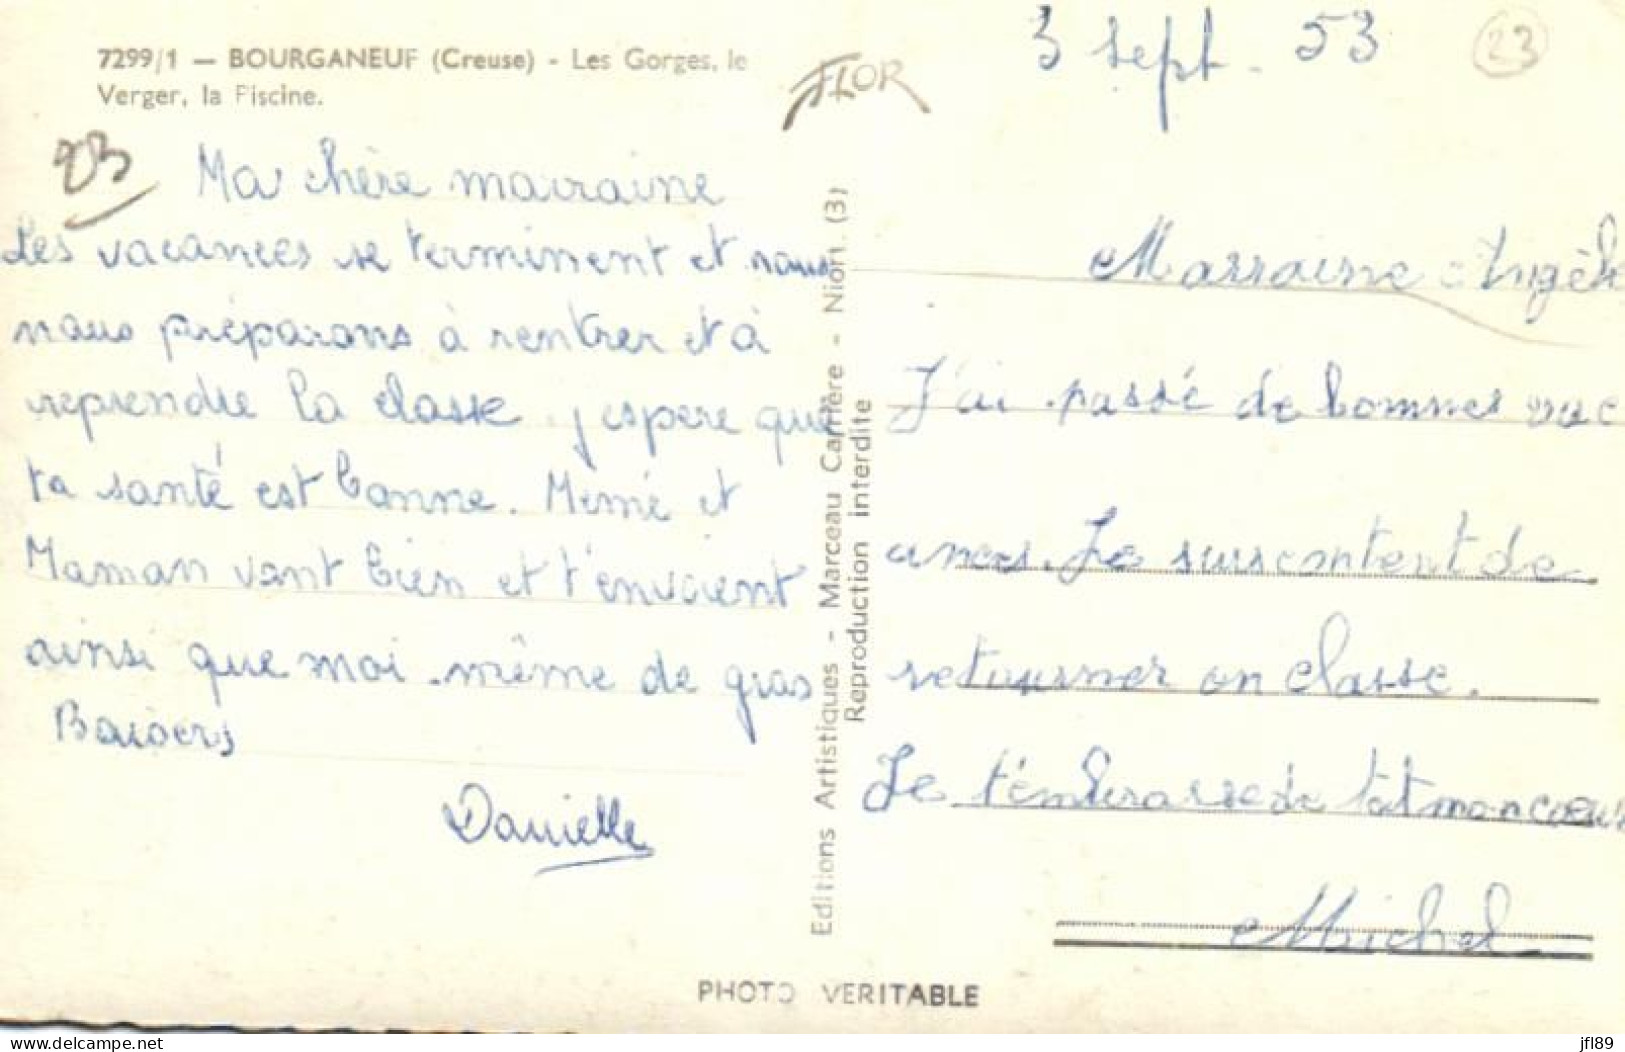 7299/1 — BOURGANEUF (Creuse) - Les Gorges, le
Verger, la Piscine.
FLOR
3 Sept. 53
23
23
Ma chère marraine
Les vacances se terminent et nous
nous préparons à rentrer et à
reprendre la classe. j'espere que
ta santé est bonne. Mémé et
Maman vont bien et t'envoient
ainsi que moi-même de gros
Baisers
Danielle
Editions Artistiques - Marceau Carrière - Niort. (3)
Reproduction interdite
Marraine Angèle
J'ai passé de bonnes vac
ances. Je suis content de
retourner en classe.
Je t'embrasse de tout mon cœur
Michel
PHOTO VERITABLE
delcampe.net
jfl89